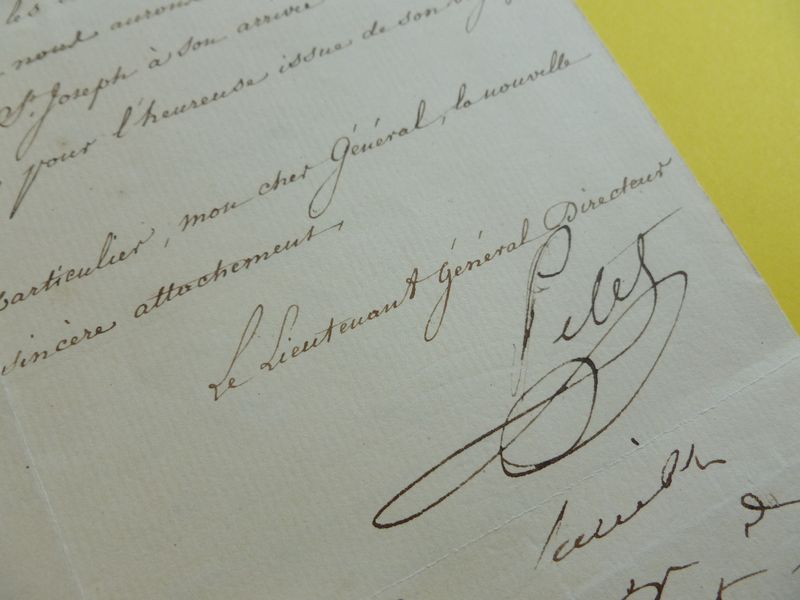 les
nous aurons
St. Joseph à son arrivée
pour l'heureuse issue de son
particulier, mon cher Général, la nouvelle
sincère attachement,
Le Lieutenant Général Directeur
Pelet